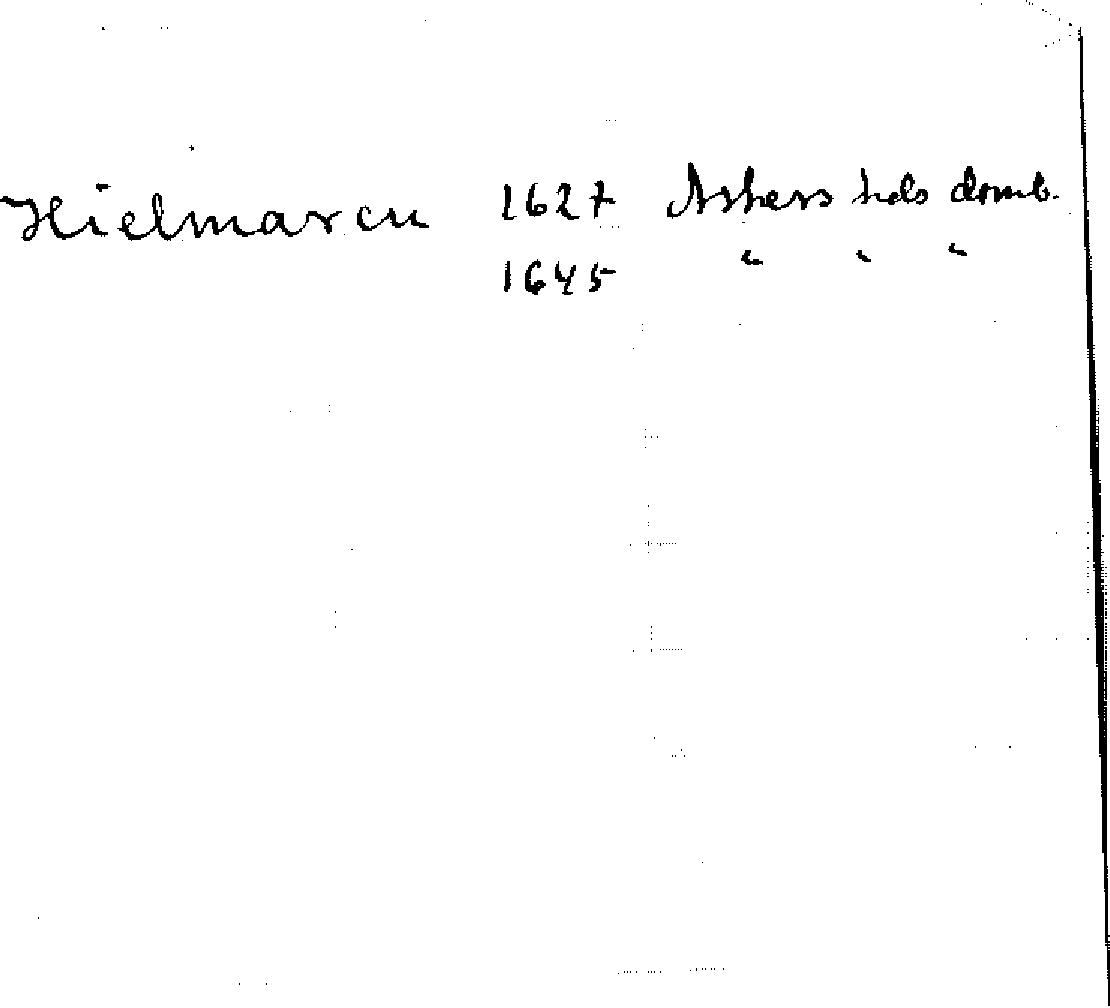 Hielmaren 1627 Askers hds domb.
1645 " " "